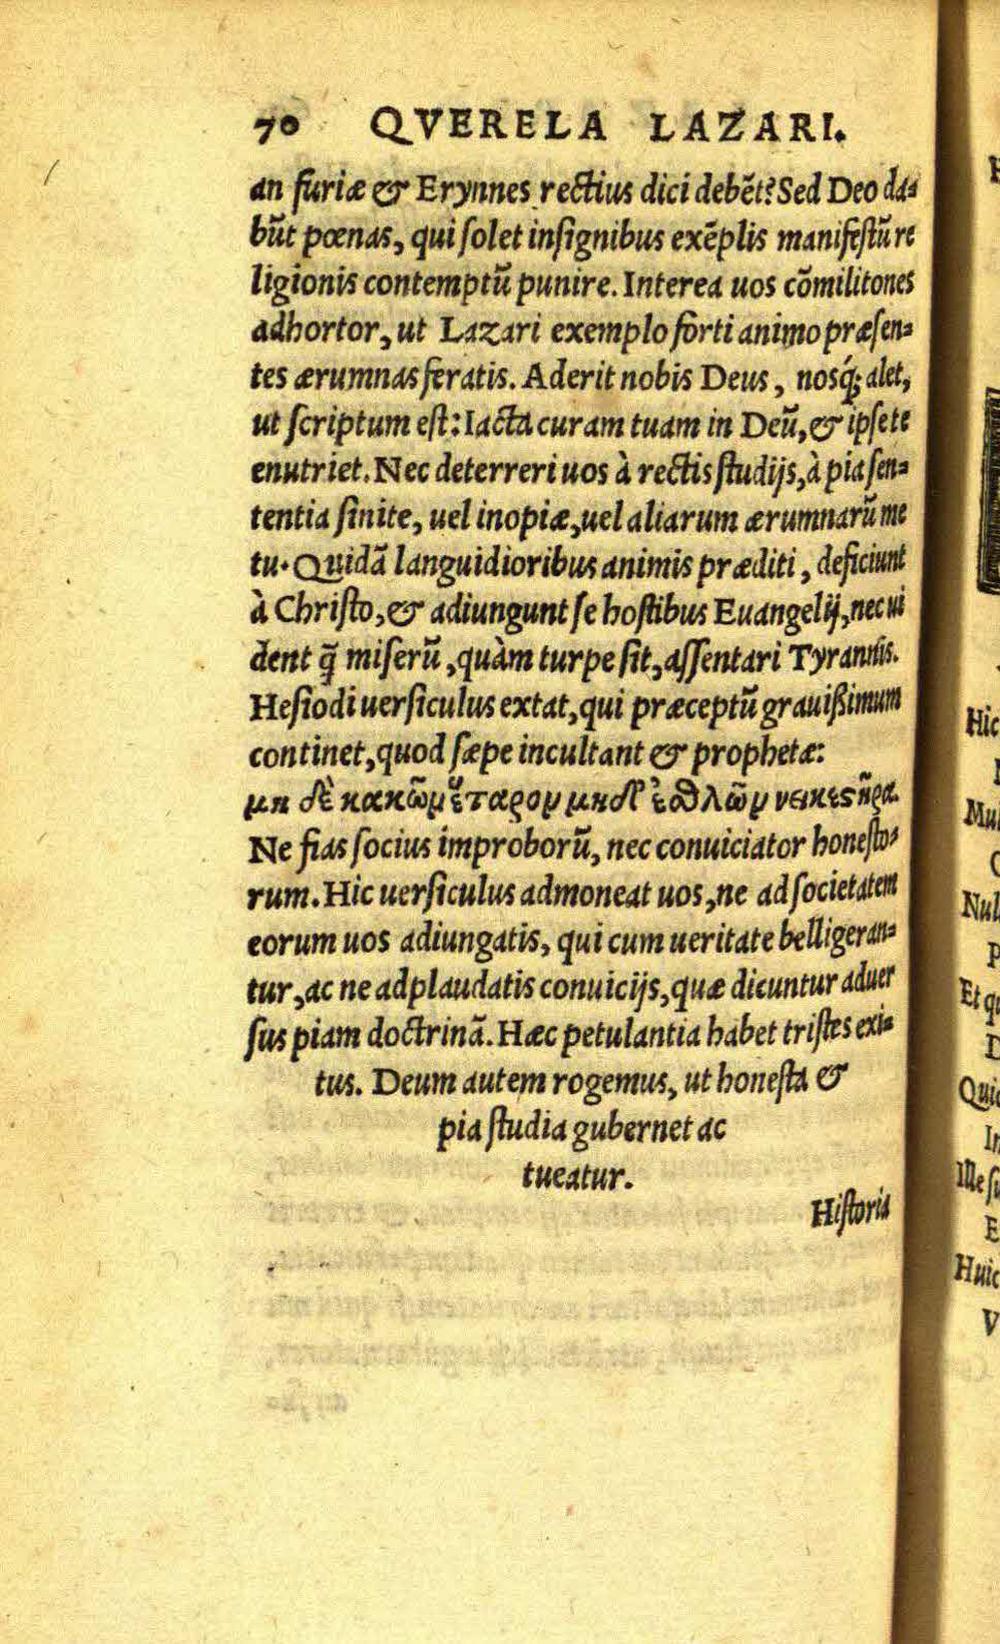 70 QVERELA LAZARI.
an furiæ & Erynnes rectius dici debẽt? Sed Deo da⸗
bũt pœnas, qui solet insignibus exẽplis manifestũ re
ligionis contemptũ punire. Interea uos cõmilitones
adhortor, ut Lazari exemplo forti animo præsen⸗
tes ærumnas feratis. Aderit nobis Deus, nosq́; alet,
ut scriptum est: Iacta curam tuam in Deũ, & ipse te
enutriet. Nec deterreri uos à rectis studijs, à pia sen⸗
tentia sinite, uel inopiæ, uel aliarum ærumnarũ me
tu. Quidã languidioribus animis præditi, deficiunt
à Christo, & adiungunt se hostibus Euangelij, nec ui
dent q̃ miserũ, quàm turpe sit, assentari Tyrannis.
Hesiodi uersiculus extat, qui præceptũ grauißimum
continet, quod sæpe incultant & prophetæ:
μη δὲ κακῶμ ἕταρομ μηδ' ἐσθλῶμ νεικεσῆρα.
Ne fias socius improborũ, nec conuiciator honesto⸗
rum. Hic uersiculus admoneat uos, ne ad societatem
eorum uos adiungatis, qui cum ueritate belligeran⸗
tur, ac ne adplaudatis conuicijs, quæ dicuntur aduer
sus piam doctrinã. Hæc petulantia habet tristes exi⸗
tus. Deum autem rogemus, ut honesta &
pia studia gubernet ac
tueatur.
Historia
Hic
Mul
Nul
Et qu
Qui
Ille su
Huic